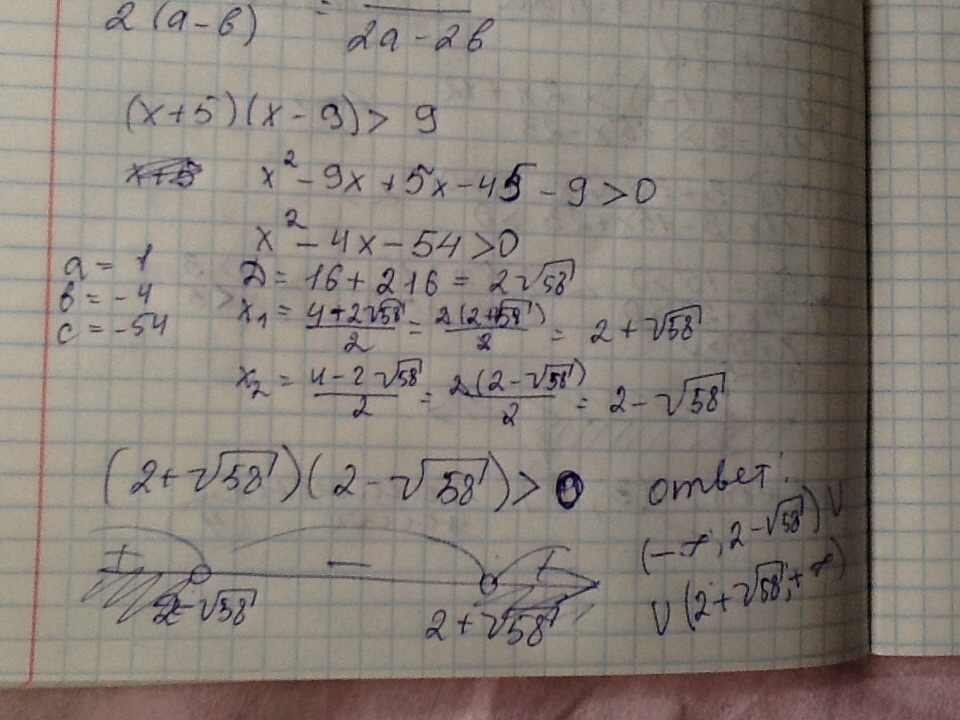 2(a-b) = 2a-2b
(x+5)(x-9)> 9
x+5 x²-9x+5x-45-9>0
x²-4x-54>0
a = 1
b = -4
c = -54
D = 16+216 = 2√58
x₁ = 4+2√58/2 = 2(2+√58)/2 = 2+√58
x₂ = 4-2√58/2 = 2(2-√58)/2 = 2-√58
(2+√58)(2-√58)> 0
+ − +
2-√58 2+√58
ответ:
(-∞; 2-√58) U
U (2+√58; +∞)